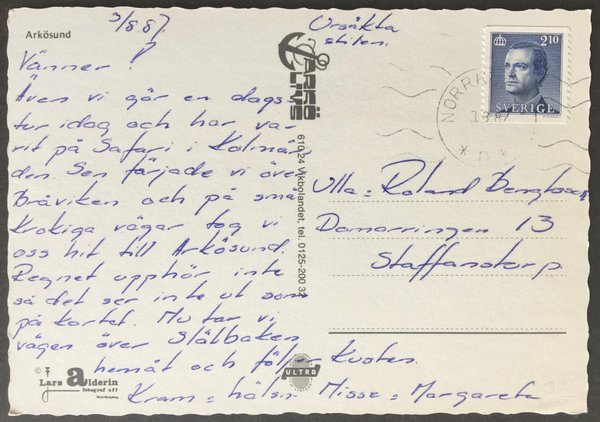 Arkösund
3/8.87.
Ursäkta
stilen.
Vänner!
Även vi gör en dags-
tur idag och har va-
rit på Safari i Kolmår-
den. Sen färjade vi över
Bråviken och på små
krokiga vägar tog vi
oss hit till Arkösund.
Regnet upphör inte
så det ser inte ut som
på kortet. Nu tar vi
vägen över Stålbåken
hemåt och följer kusten.
Kram = hälsn Nisse = Margareta
ARKÖ
LIVS
610 24 Vikbolandet, tel. 0125-200 32
2.10
SVERIGE
NORRK
3.8.87
Ulla = Roland Bengtsson
Damarringen 13
Staffanstorp
© Lars alderin
fotograf sff
Norrköping
ULTRA